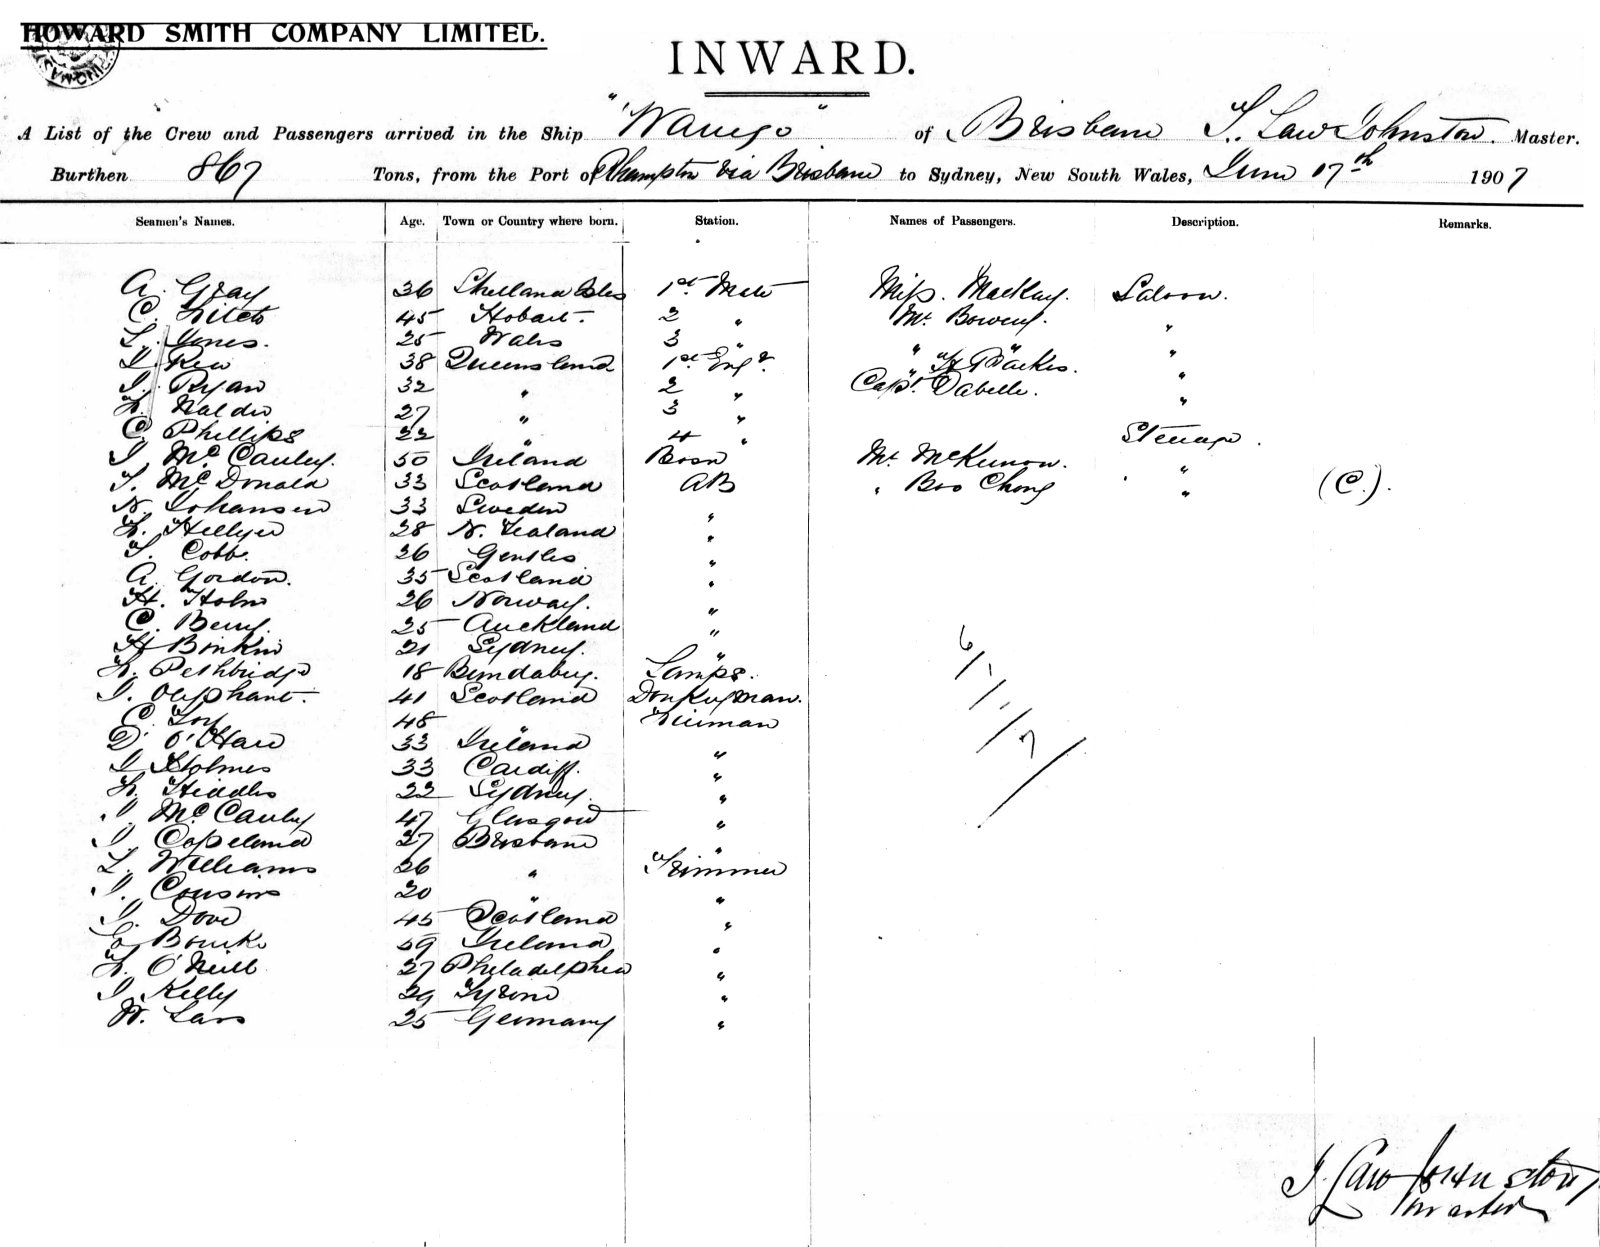 HOWARD SMITH COMPANY LIMITED.
INWARD.
A List of the Crew and Passengers arrived in the Ship "Warrego" of Brisbane T. Law Johnston. Master.
Burthen 867 Tons, from the Port of Rhampton via Brisbane to Sydney, New South Wales, June 17th 1907
Seamen's Names. Age. Town or Country where born. Station. Names of Passengers. Description. Remarks.
A. Gray 36 Shetland Isles 1st Mate Miss. Mackay. Saloon.
C. 45 Hobart. 2 " Mr. "
L. Jones. 25 Wales 3 " " "
38 Queensland 1st Engr. "
J. Ryan 32 " 2 " Capt. "
27 " 3 "
C. Phillips 22 " 4 " Steerage.
J. McCauley. 50 Ireland Bosn Mr. McKinnon. "
T. McDonald 33 Scotland AB " Boo Chong " (C.).
N. Johansen 33 Sweden "
H. Hellyer 28 N. Zealand "
T. Cobb. 26 "
A. Gordon. 35 Scotland "
H. Holm 26 Norway. "
C. Berry. 25 Auckland "
21 Sydney. "
H. Pethbridge 18 Bundaberg. Lamps.
J. Oliphant. 41 Scotland Donkeyman.
48 Fireman
D. O'Hare 33 Ireland "
J. Holmes 33 Cardiff. "
22 Sydney. "
J. McCauley 47 Glasgow "
J. Copeland 27 Brisbane "
L. Williams 26 " Trimmer
J. Cousins 20 " "
J. Dove 45 Scotland "
Bourke 59 Ireland "
H. O'Neill 27 Philadelphia "
J. Kelly 29 Tyrone "
W. 25 Germany "
T. Law Johnston
Master